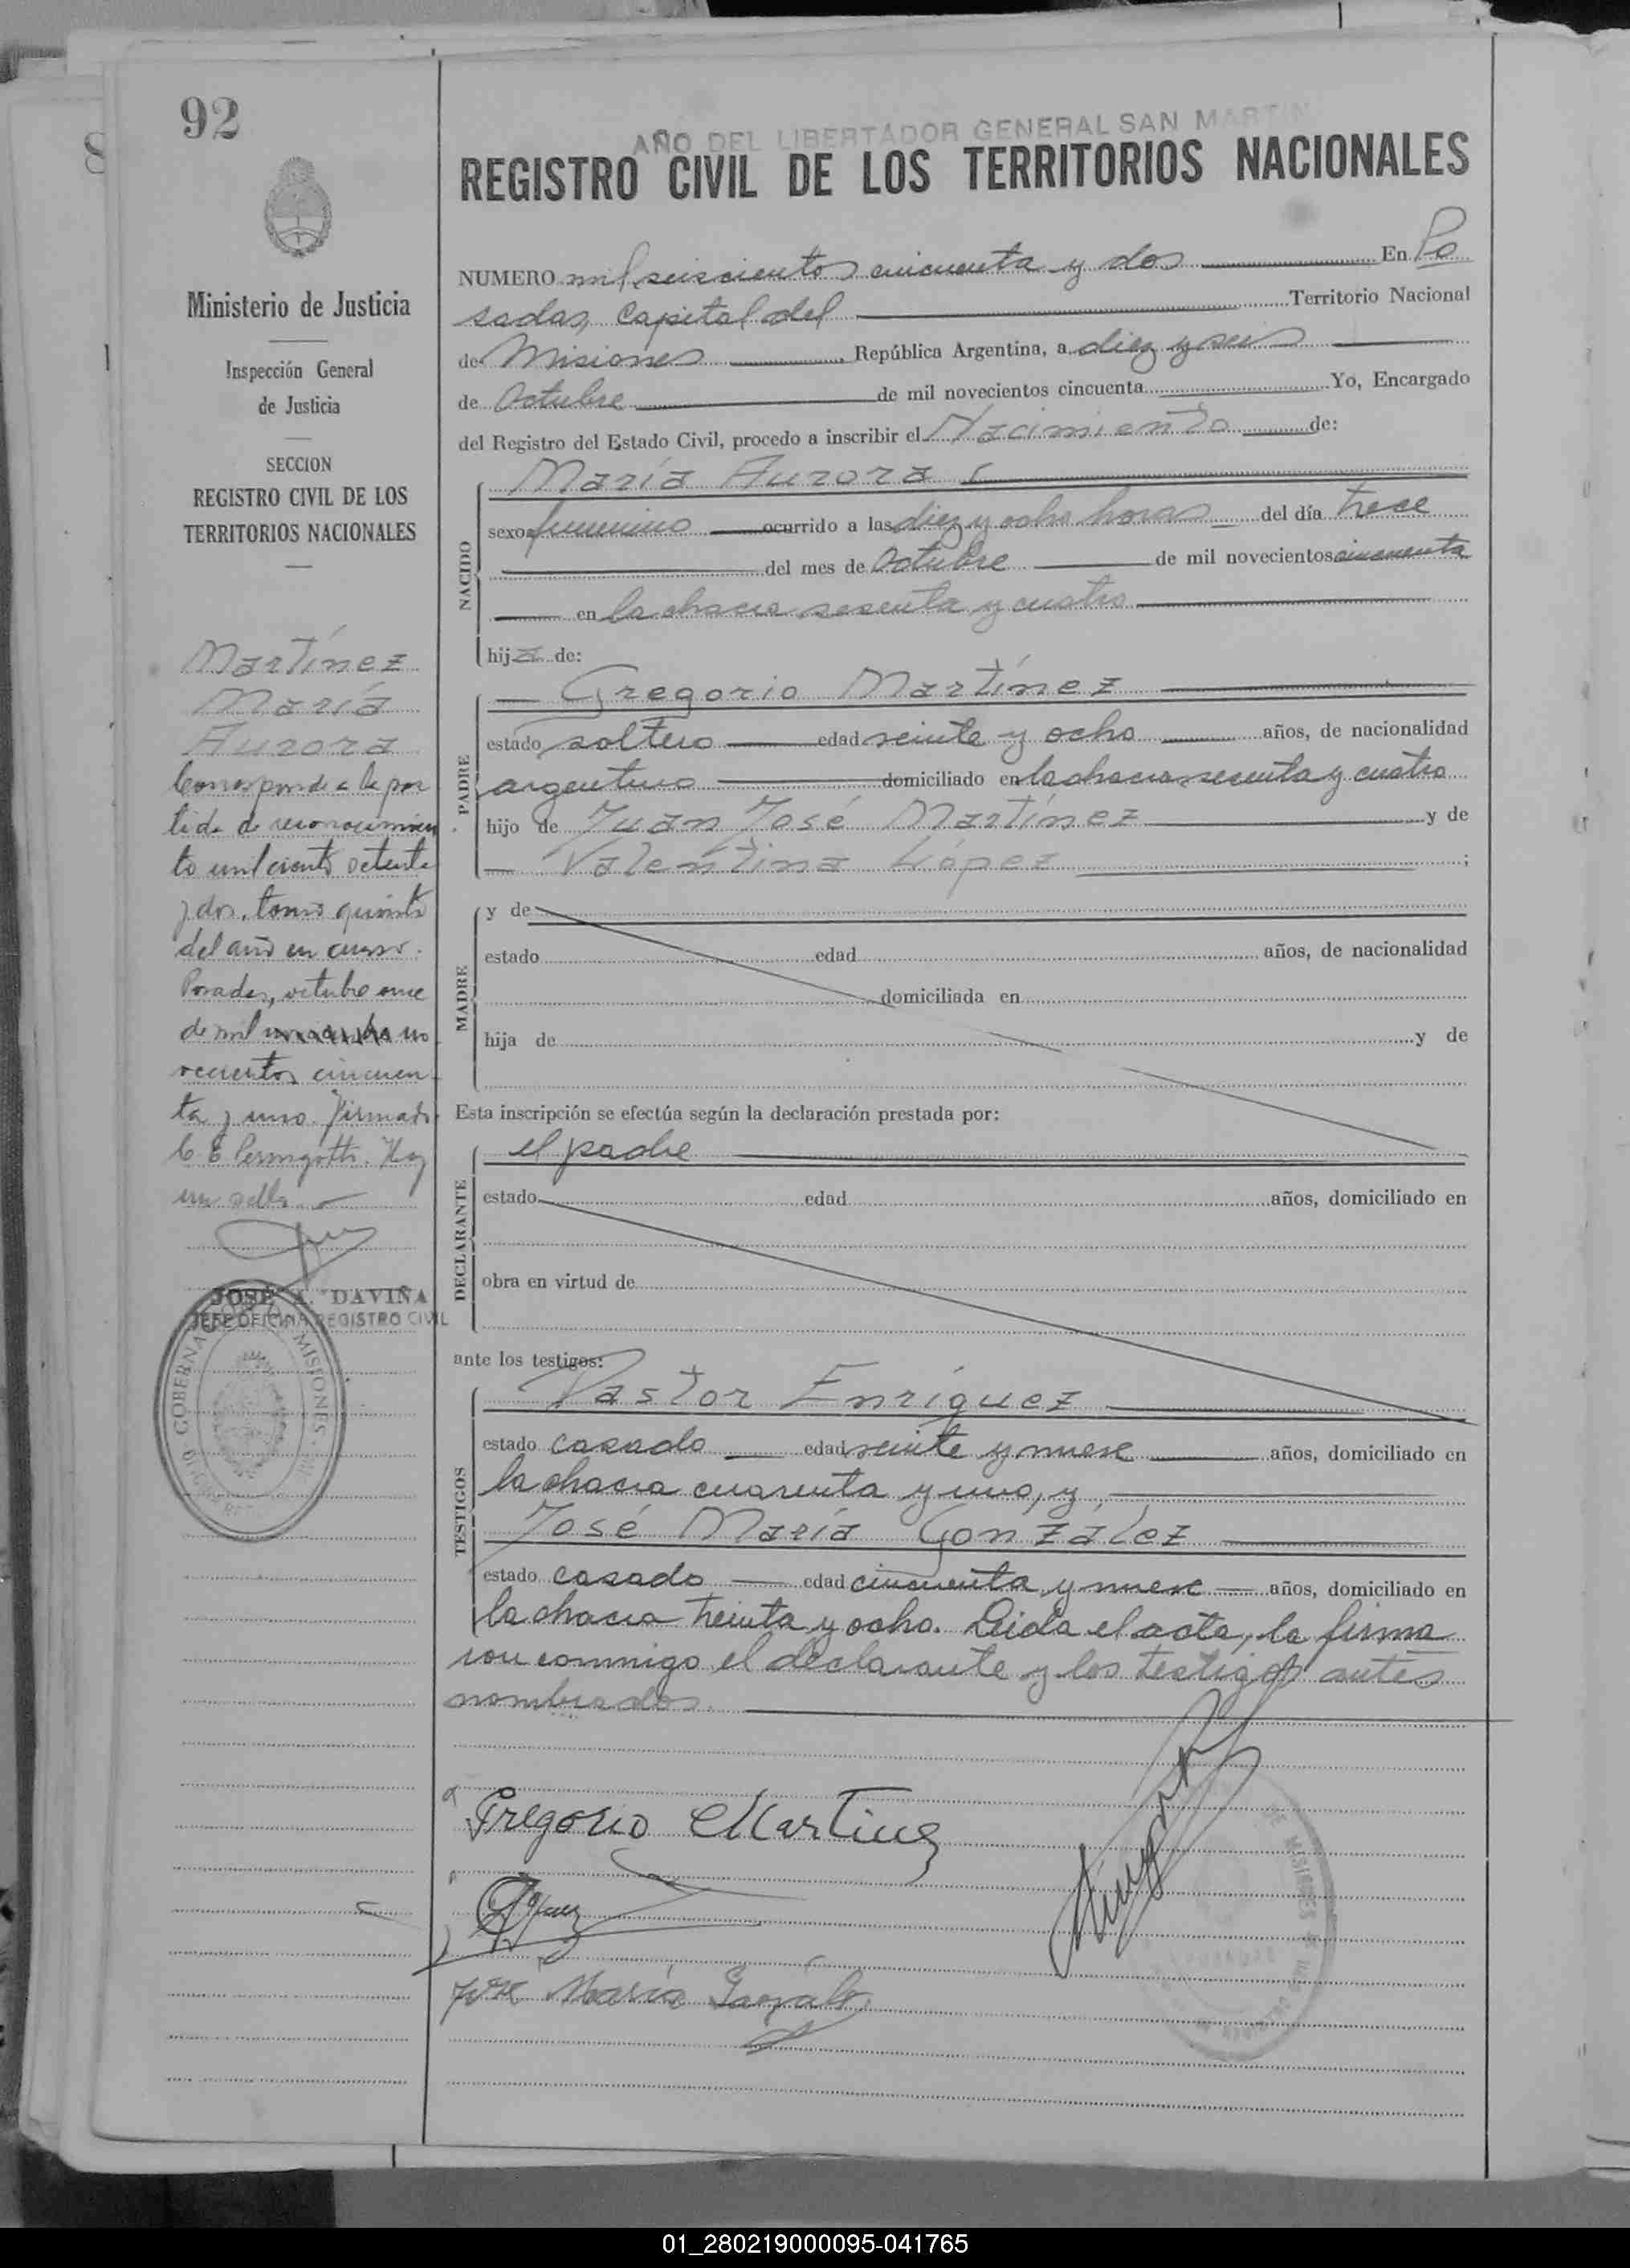 92
AÑO DEL LIBERTADOR GENERAL SAN MARTIN
REGISTRO CIVIL DE LOS TERRITORIOS NACIONALES
Ministerio de Justicia
Inspección General
de Justicia
SECCION
REGISTRO CIVIL DE LOS
TERRITORIOS NACIONALES
Martínez
María
Aurora
Corresponde a la par
tida de reconocimien
to mil ciento setenta
y dos, tomo quinto
del año en curso.
Posadas, octubre once
de mil no
vecientos cincuen
ta y uno. Firmado
C. E. Hay
un sello.
JOSÉ A. DAVIÑA
JEFE OFICINA REGISTRO CIVIL
GOBERNACION MISIONES
NUMERO mil seiscientos cincuenta y dos En Po
sadas, Capital del Territorio Nacional
de Misiones República Argentina, a diez y seis
de Octubre de mil novecientos cincuenta Yo, Encargado
del Registro del Estado Civil, procedo a inscribir el Nacimiento de:
NACIDO
María Aurora
sexo femenino ocurrido a las diez y ocho horas del día trece
del mes de Octubre de mil novecientos cincuenta
en la chacra sesenta y cuatro
hija de:
PADRE
Gregorio Martínez
estado soltero edad veinte y ocho años, de nacionalidad
argentino domiciliado en la chacra sesenta y cuatro
hijo de Juan José Martínez y de
Valentina López ;
MADRE
y de
estado edad años, de nacionalidad
domiciliada en
hija de y de
Esta inscripción se efectúa según la declaración prestada por:
DECLARANTE
el padre
estado edad años, domiciliado en
obra en virtud de
ante los testigos:
TESTIGOS
Pastor Enríquez
estado casado edad veinte y nueve años, domiciliado en
la chacra cuarenta y uno, y
José María González
estado casado edad cincuenta y nueve años, domiciliado en
la chacra treinta y ocho. Leida el acta, la firma
ron conmigo el declarante y los testigos antes
nombrados.
Gregorio Martinez
José María González
DE MISIONES
01_280219000095-041765